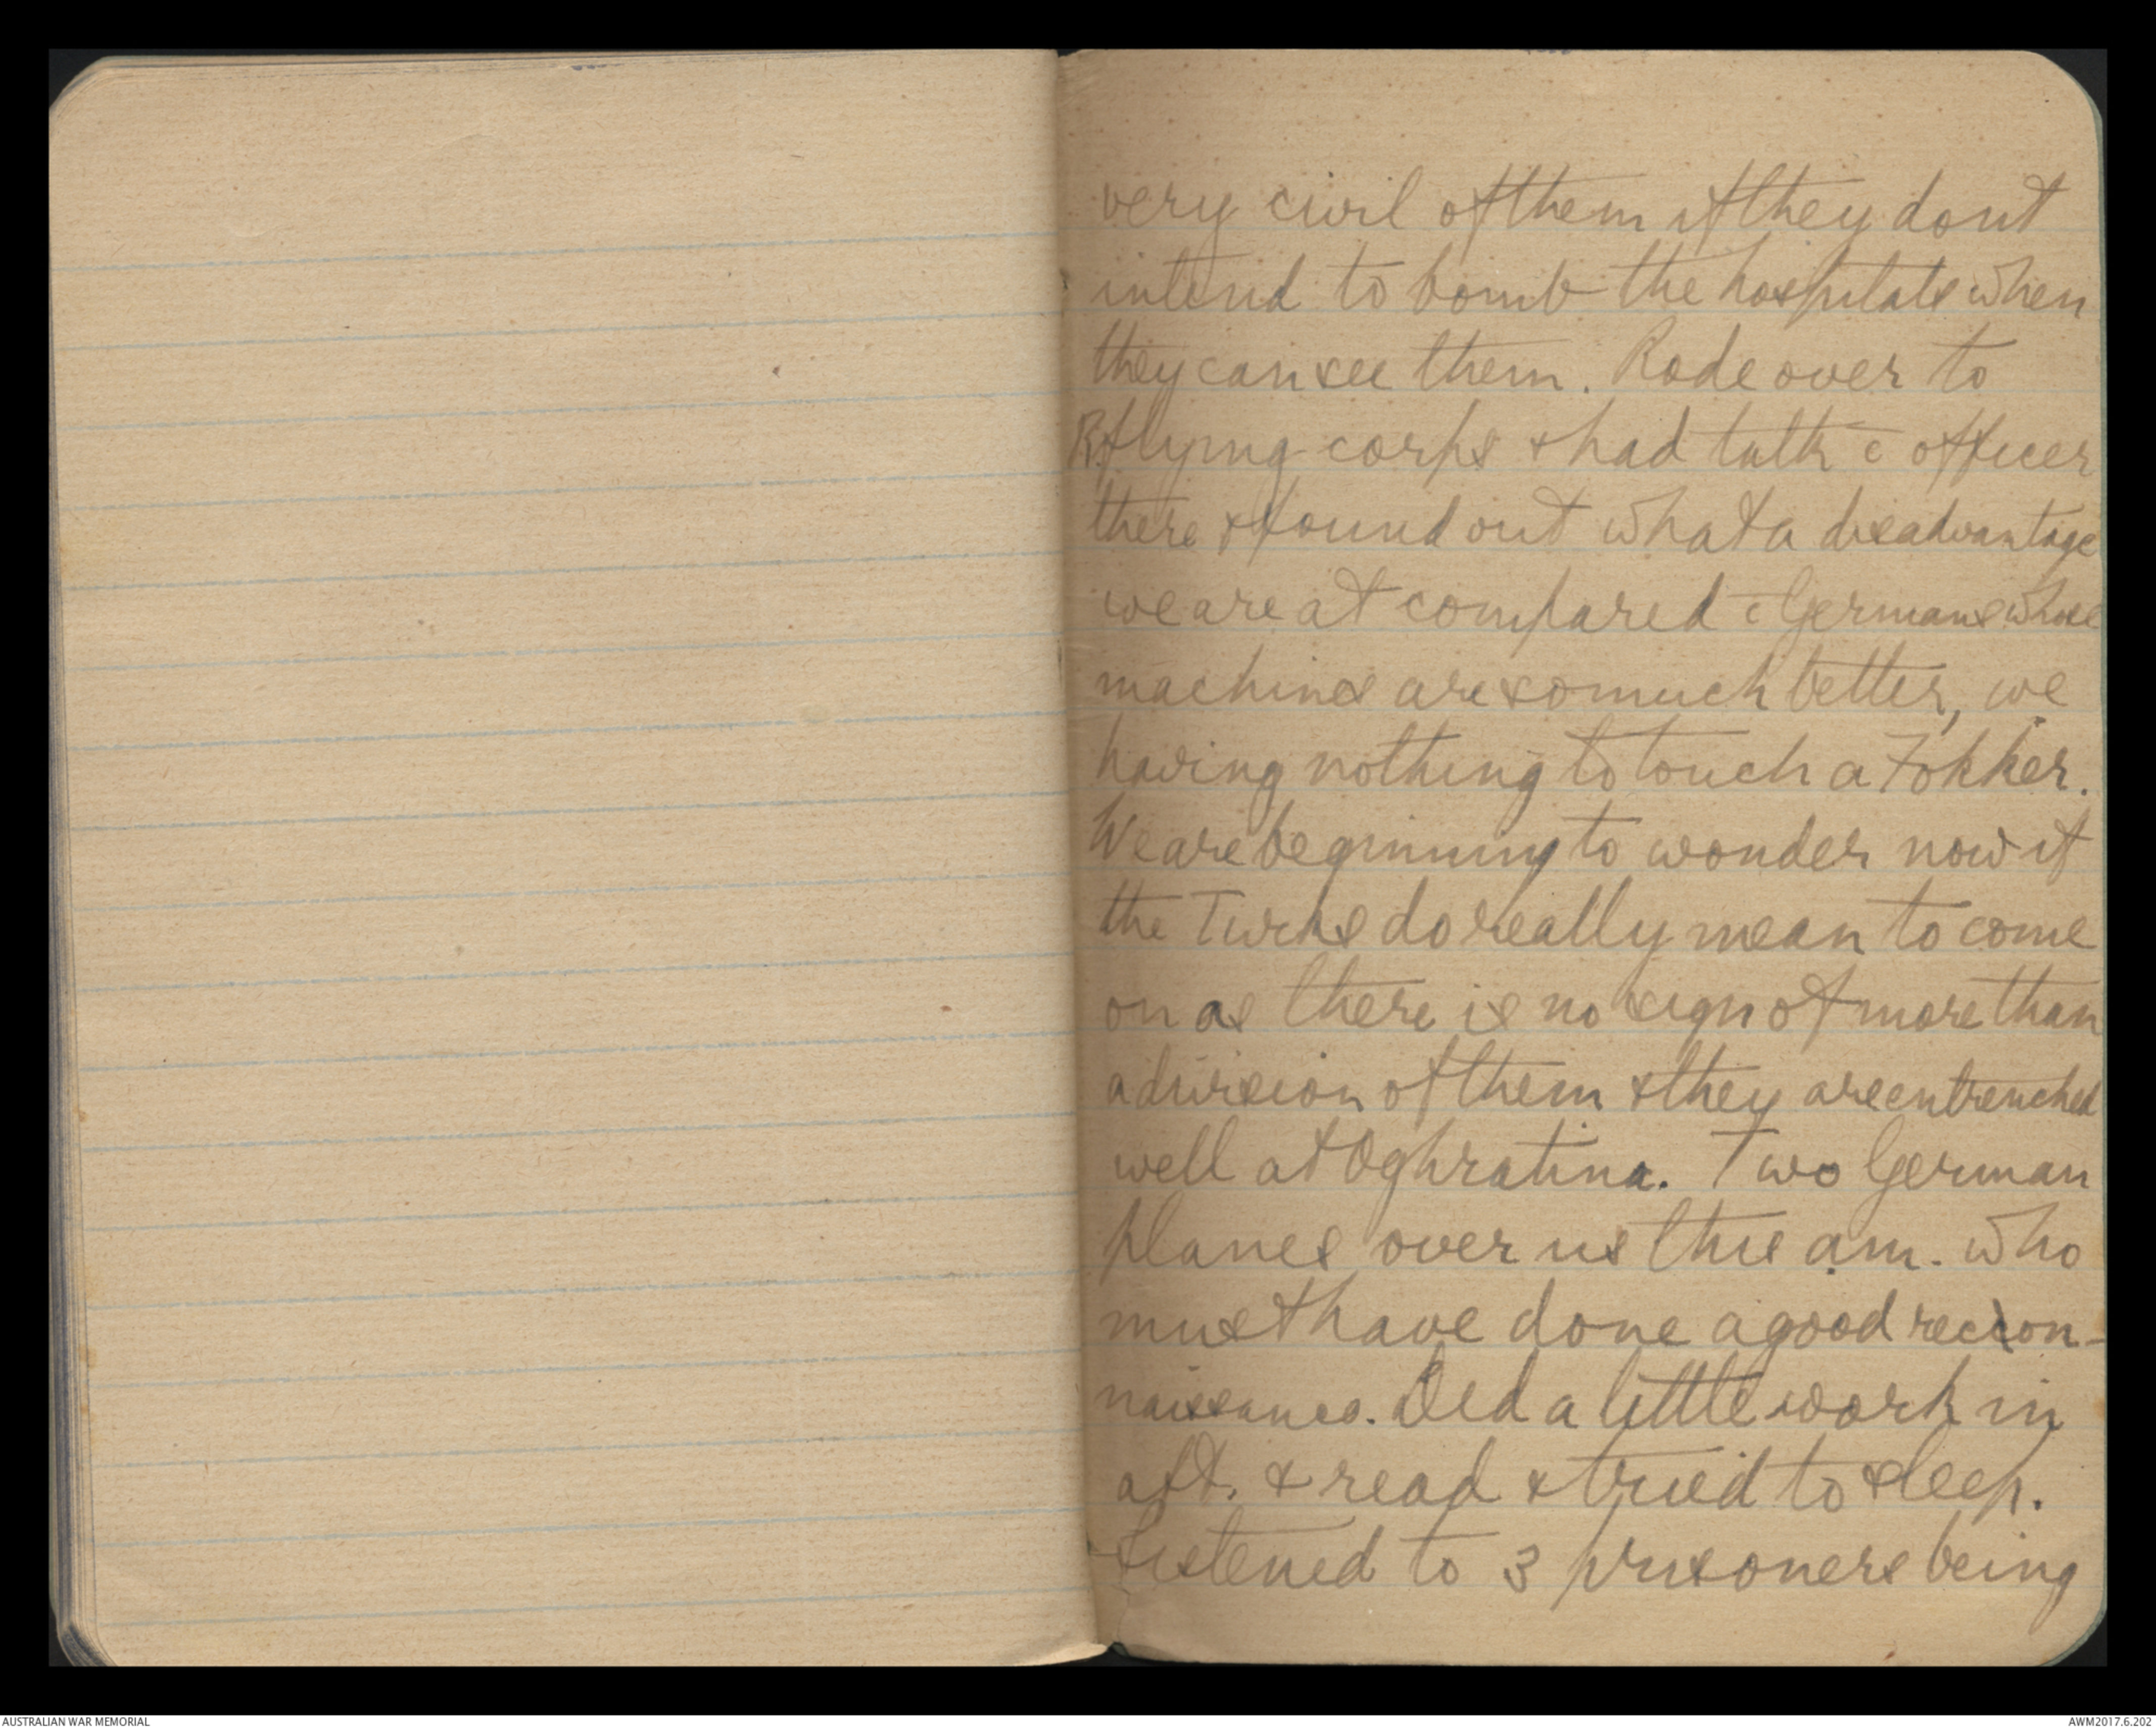 very civil of them if they dont
intend to bomb the hospitals when
they can see them. Rode over to
R. flying corps & had talk c officer
there & found out what a disadvantage
we are at compared c Germans whose
machines are so much better, we
having nothing to touch a Fokker.
We are beginning to wonder now if
the Turks do really mean to come
on as there is no sign of more than
a division of them & they are entrenched
well at Oghratina. Two German
planes over us this a.m. who
must have done a good reccon-
naissance. Did a little work in
aft. & read & tried to sleep.
Listened to 3 prisoners being
AUSTRALIAN WAR MEMORIAL
AWM2017.6.202